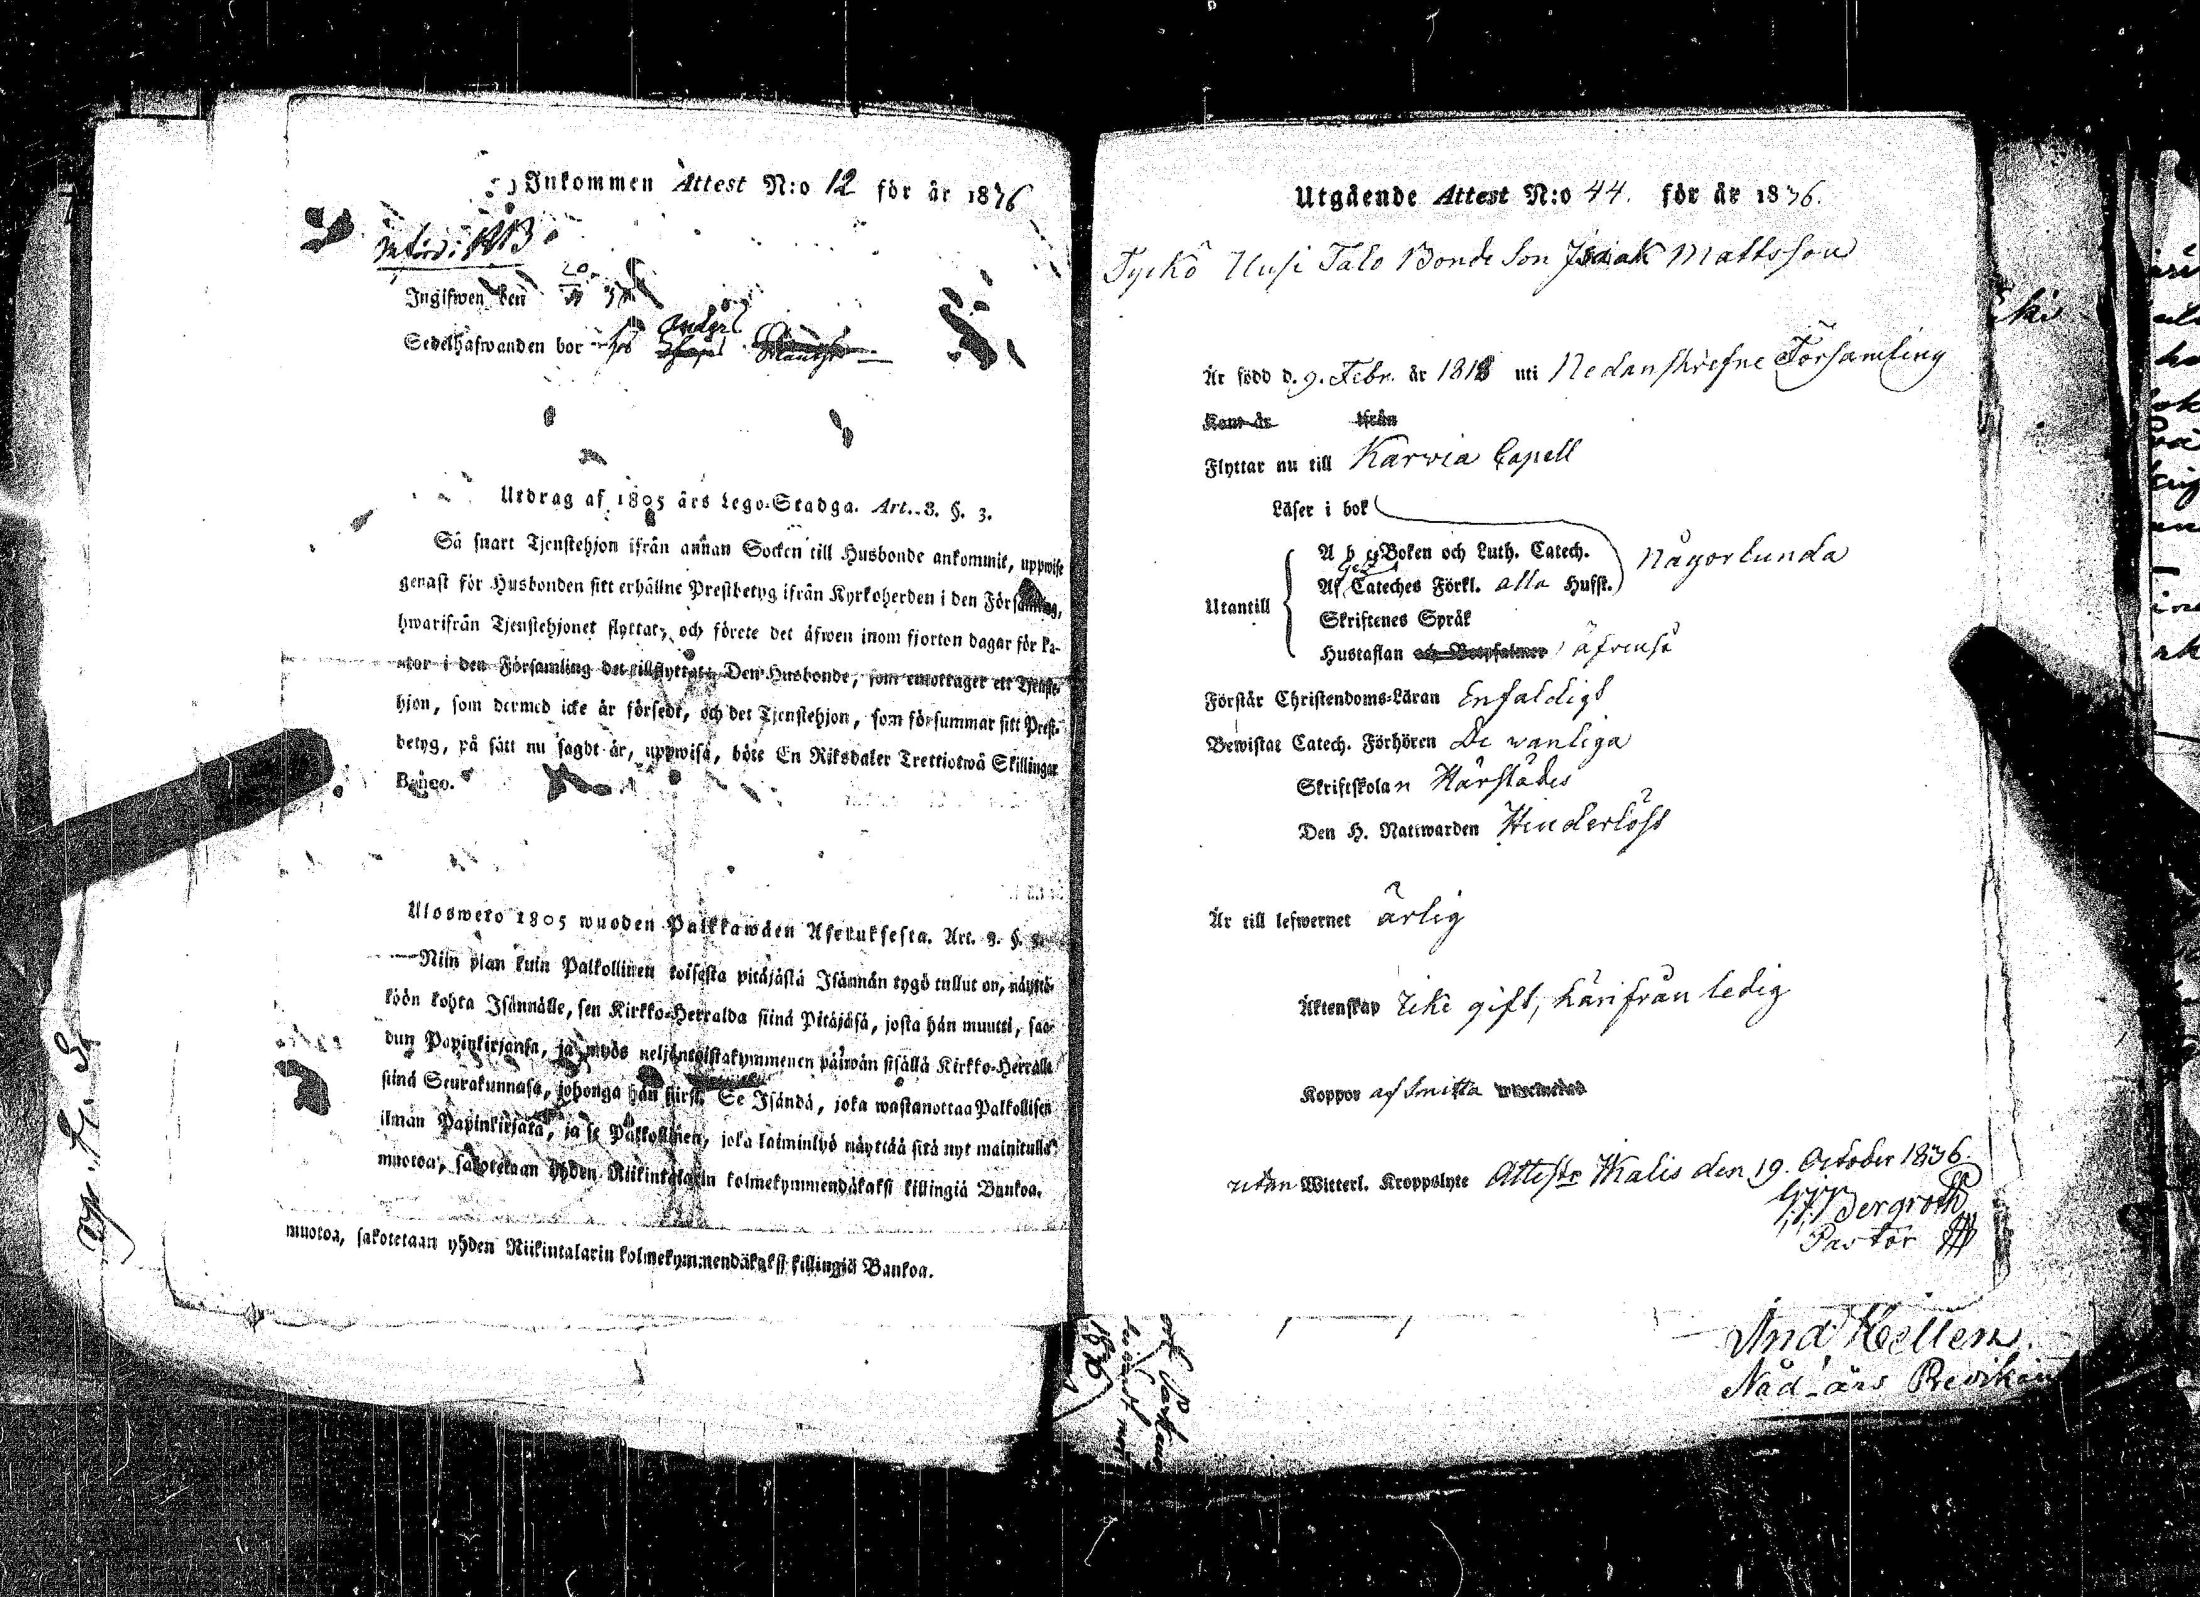 Inkommen Attest N:o 12 för år 1836
Ingifwen den 20
Sedelhafwanden bor hos
Utdrag af 1805 års Lego-Stadga. Art. 8. §. 3.
Så snart Tjenstehjon ifrån annan Socken till Husbonde ankommit, uppwise
genast för Husbonden sitt erhållne Prestbetyg ifrån Kyrkoherden i den Församling,
hwarifrån Tjenstehjonet flyttat, och förete det äfwen inom fjorton dagar för
i den Församling det tillflyttat; Den Husbonde, som emottager ett Tjenste-
hjon, som dermed icke är försedt, och det Tjenstehjon, som försummar sitt Prest-
betyg, på sätt nu sagdt är, uppwisa, böte En Riksdaler Trettiotwå Skillingar
Banco.
Ulosweto 1805 wuoden Palkkawäen Asetuksesta. Art. 8. §. 3.
Niin pian kuin Palkollinen toisesta pitäjästä Isännän tygö tullut on, näyttä-
köön kohta Isännälle, sen Kirkko-Herralda siinä Pitäjäsä, josta hän muutti, saa-
dun Papinkirjansa, ja myös neljäntoistakymmenen päiwän sisällä Kirkko-Herralle
siinä Seurakunnasa, johonga hän siirsi. Se Isändä, joka wastanottaa Palkollisen
ilman Papinkirjata, ja se Palkollinen, joka laiminlyö näyttää sitä nyt mainitulla
muotoa, sakotetaan yhden Riikintalarin kolmekymmendäkaksi killingiä Bankoa.
muotoa, sakotetaan yhden Riikintalarin kolmekymmendäkaksi killingiä Bankoa.
Utgående Attest N:o 44. för år 1836.
Tyckö Uusi Talo Bonde Son Isaak Mattsson
Är född d. 9. Febr. år 1818 uti Nedanskrefne Församling
Kom år ifrån
Flyttar nu till Karvia Capell
Läser i bok
A b c Boken och Luth. Catech. Någorlunda
Af Cateches Förkl. alla Hufst.
Utantill
Skriftenes Språk
Hustaflan och Botpsalmer äfvenså
Förstår Christendoms-Läran Enfaldigt
Bewistat Catech. Förhören De vanliga
Skriftskolan Härstädes
Den H. Nattwarden Hinderlöst
Är till lefwernet ärlig
Äktenskap Icke gift, härifrån ledig
Koppor af Smitta
utan Witterl. Kroppslyte Attestr Ikalis den 19. October 1836.
Bergroth
Pastor
And Hellen
Nåd-års Predikant
1836